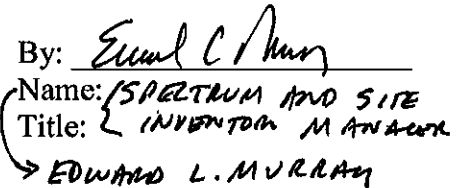 By:
Name: SPECTRUM AND SITE
Title: INVENTORY MANAGER
EDWARD L. MURRAY